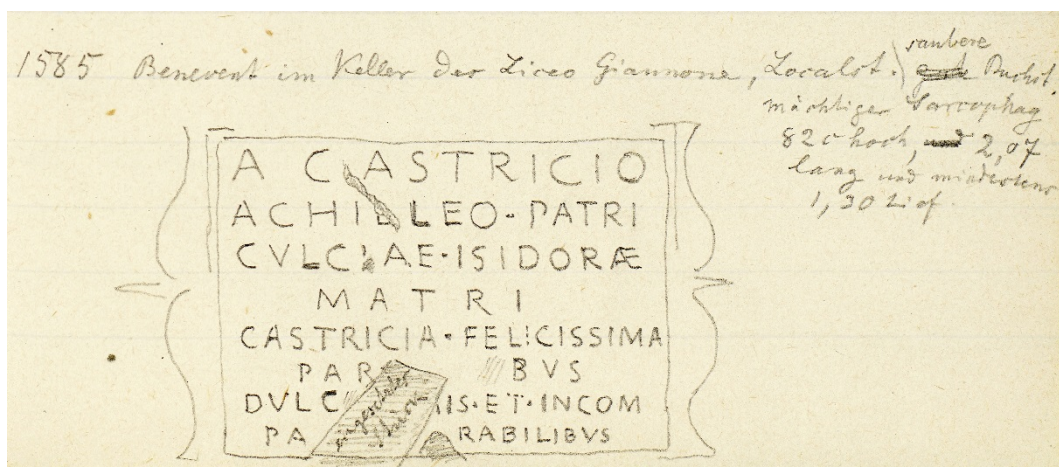 saubere
1585 Benevent im Keller des Liceo Giannone, Localst. Buchst.
mächtiger Sarcophag
82 c hoch, und 2,07
lang und mindestens
1,30 tief.
A CASTRICIO
ACHILLEO · PATRI
CVLCIAE · ISIDORÆ
MATRI
CASTRICIA · FELICISSIMA
PAR BVS
DVLC IS · ET · INCOM
PA RABILIBVS